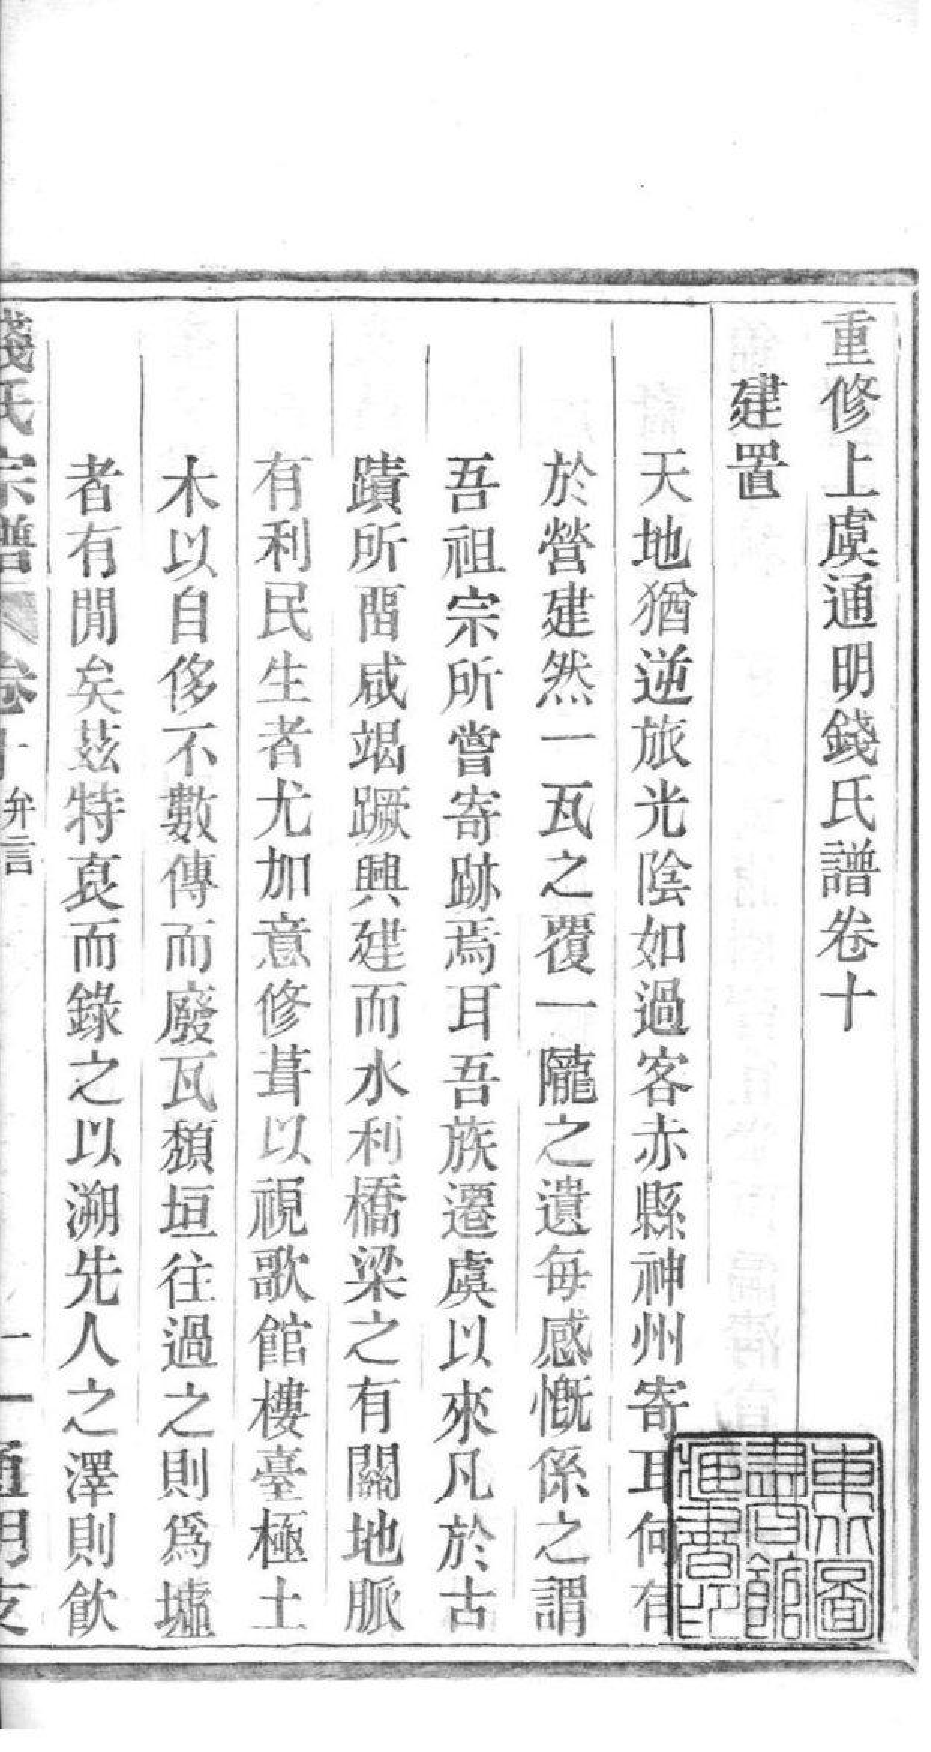 重修上虞通明錢氏譜卷十
建置
天地猶逆旅光陰如過客赤縣神州寄耳何有
於營建然一瓦之覆一隴之遺每感慨係之謂
吾祖宗所嘗寄跡焉耳吾族遷虞以來凡於古
蹟所畱咸竭蹶興建而水利橋梁之有關地脈
有利民生者尤加意修葺以視歌館樓臺極土
木以自侈不數傳而廢瓦頹垣往過之則爲墟
者有閒矣茲特裒而錄之以溯先人之澤則飮
錢氏宗譜 卷十 弁言 一 通明支